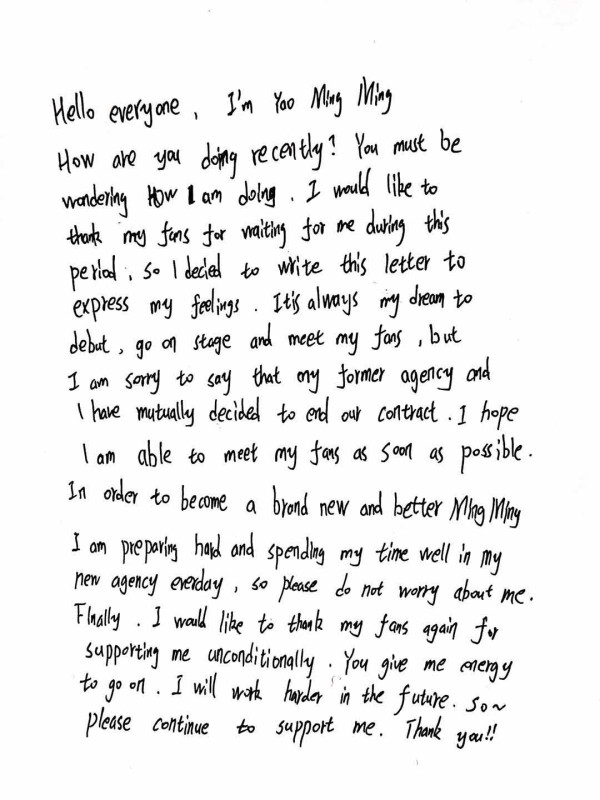 Hello everyone , I'm Yao Ming Ming
How are you doing recently? You must be
wondering How I am doing . I would like to
thank my fans for waiting for me during this
period , so I decied to write this letter to
express my feelings . Itis always my dream to
debut , go on stage and meet my fans , but
I am sorry to say that my former agency and
I have mutually decided to end our contract . I hope
I am able to meet my fans as soon as possible .
In order to become a brand new and better Ming Ming
I am preparing hard and spending my time well in my
new agency everday , so please do not worry about me .
Finally . I would like to thank my fans again for
supporting me unconditionally . You give me energy
to go on . I will work harder in the future . so~
please continue to support me . Thank you!!